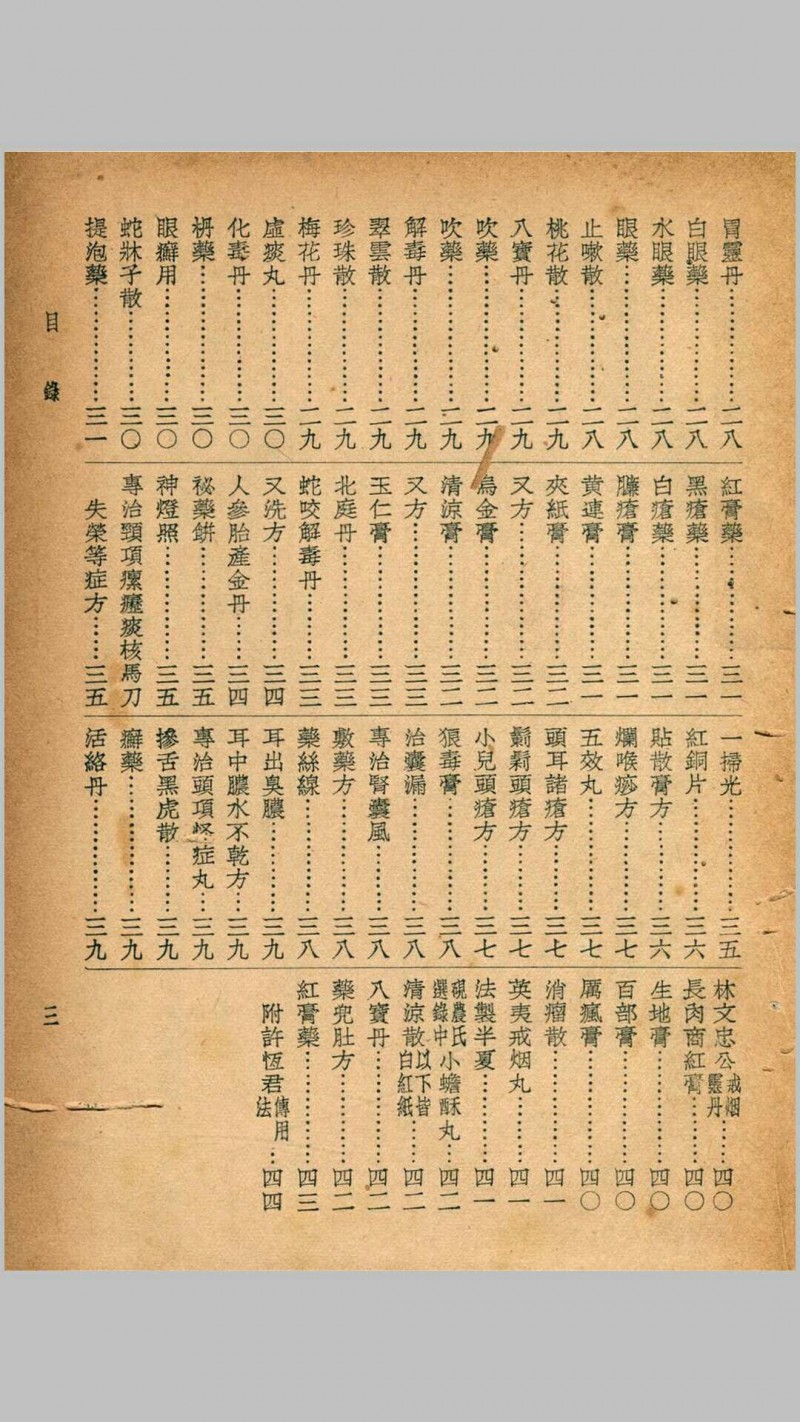 胃靈丹………………二八
白眼藥………………二八
水眼藥………………二八
眼藥…………………二八
止嗽散………………二八
桃花散………………二九
八寶丹………………二九
吹藥…………………二九
吹藥…………………二九
解毒丹………………二九
翠雲散………………二九
珍珠散………………二九
梅花丹………………二九
虛痰丸………………三〇
化毒丹………………三〇
枬藥…………………三〇
眼癬用………………三〇
蛇牀子散……………三〇
提泡藥………………三一
紅膏藥………………三一
黑瘡藥………………三一
白瘡藥………………三一
臁瘡膏………………三一
黄連膏………………三一
夾紙膏………………三二
又方…………………三二
烏金膏………………三二
清涼膏………………三二
又方…………………三三
玉仁膏………………三三
北庭丹………………三三
蛇咬解毒丹…………三三
又洗方………………三四
人參胎產金丹………三四
秘藥餅………………三五
神燈照………………三五
專治頸項瘰癧痰核馬刀
失榮等症方……三五
一掃光………………三五
紅銅片………………三六
貼散膏方……………三六
爛喉痧方……………三七
五效丸………………三七
頭耳諸瘡方…………三七
鬎鬁頭瘡方…………三七
小兒頭瘡方…………三七
狼毒膏………………三八
治囊漏………………三八
專治腎囊風…………三八
敷藥方………………三八
藥絲線………………三八
耳出臭膿……………三九
耳中膿水不乾方……三九
專治頭項怪症丸……三九
摻舌黑虎散…………三九
癬藥…………………三九
活絡丹………………三九
林文忠公戒烟靈丹…四〇
長肉商紅膏…………四〇
生地膏………………四〇
百部膏………………四〇
厲瘋膏………………四〇
消瘤散………………四一
英夷戒烟丸…………四一
法製半夏……………四一
硯農氏選錄中小蟾酥丸…四二
清涼散以下皆白紅紙…四二
八寶丹………………四二
藥兜肚方……………四二
紅膏藥………………四三
附許恆君傳用法…四四
目錄
三